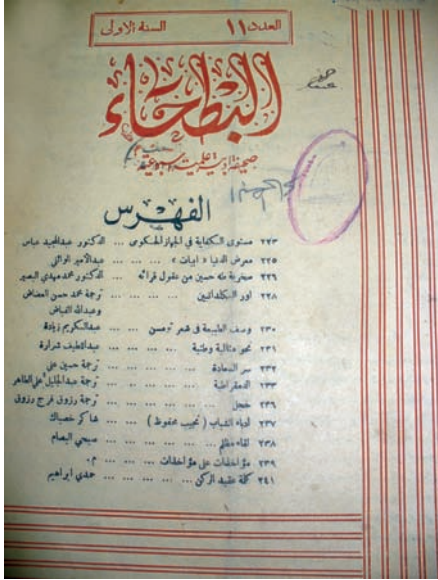 العدد ١١
السنة الاولى
البطحاء
صحيفة ادبية علمية اسبوعية
الفهرس
٢٢٣ مستوى الكفاية في الجهاز الحكومي ... الدكتور عبدالمجيد عباس
٢٢٥ معرض الدنيا « ابيات » ... عبدالأمير الوائلي
٢٢٦ سخرية طه حسين من عقول قرائه ... الدكتور محمد مهدي البصير
٢٢٨ اور الكلدانيين ... ترجمة محمد حسن
وعبدالله الفياض
٢٣٠ وصف الطبيعة في شعر تومسن ... عبدالكريم زيادة
٢٣١ نحو مثالية وطنية ... عبداللطيف شرارة
٢٣٢ سر السعادة ... ترجمة حسين علي
٢٣٣ الدمقراطية ... ترجمة عبدالجليل علي الطاهر
٢٣٦ خجل ... ترجمة رزوق فرج رزوق
٢٣٧ ادباء الشباب ( نجيب محفوظ ) ... شاكر خصباك
٢٣٨ لقاء ... صبحي البصام
٢٣٩ مؤاخذات على مؤاخذات ... م .
٢٤١ كلمة عقيد الركن ... حمدي ابراهيم